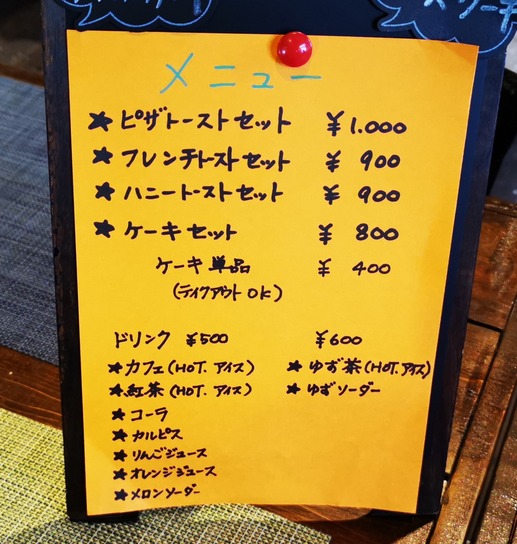 メニュー
★ピザトーストセット ￥1.000
★フレンチトーストセット ￥900
★ハニートーストセット ￥900
★ケーキセット ￥800
ケーキ単品 ￥400
(テイクアウトOK)
ドリンク ￥500
★カフェ(HOT.アイス)
★紅茶(HOT.アイス)
★コーラ
★カルピス
★りんごジュース
★オレンジジュース
★メロンソーダー
￥600
★ゆず茶(HOT.アイス)
★ゆずソーダー